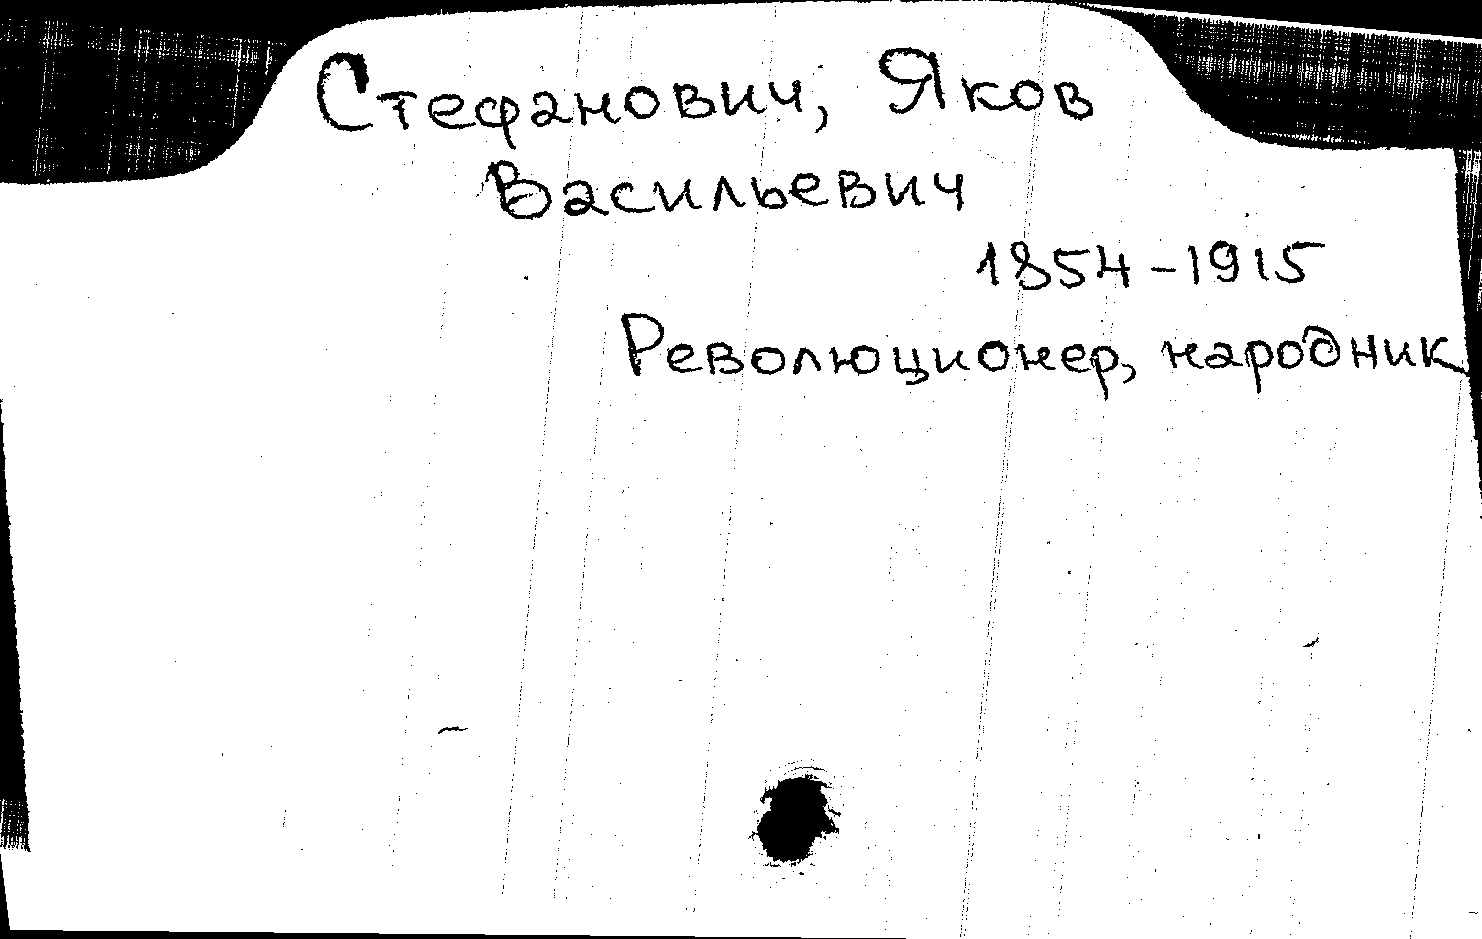 Стефанович, Яков
Васильевич
1854-1915
Революционер, народник